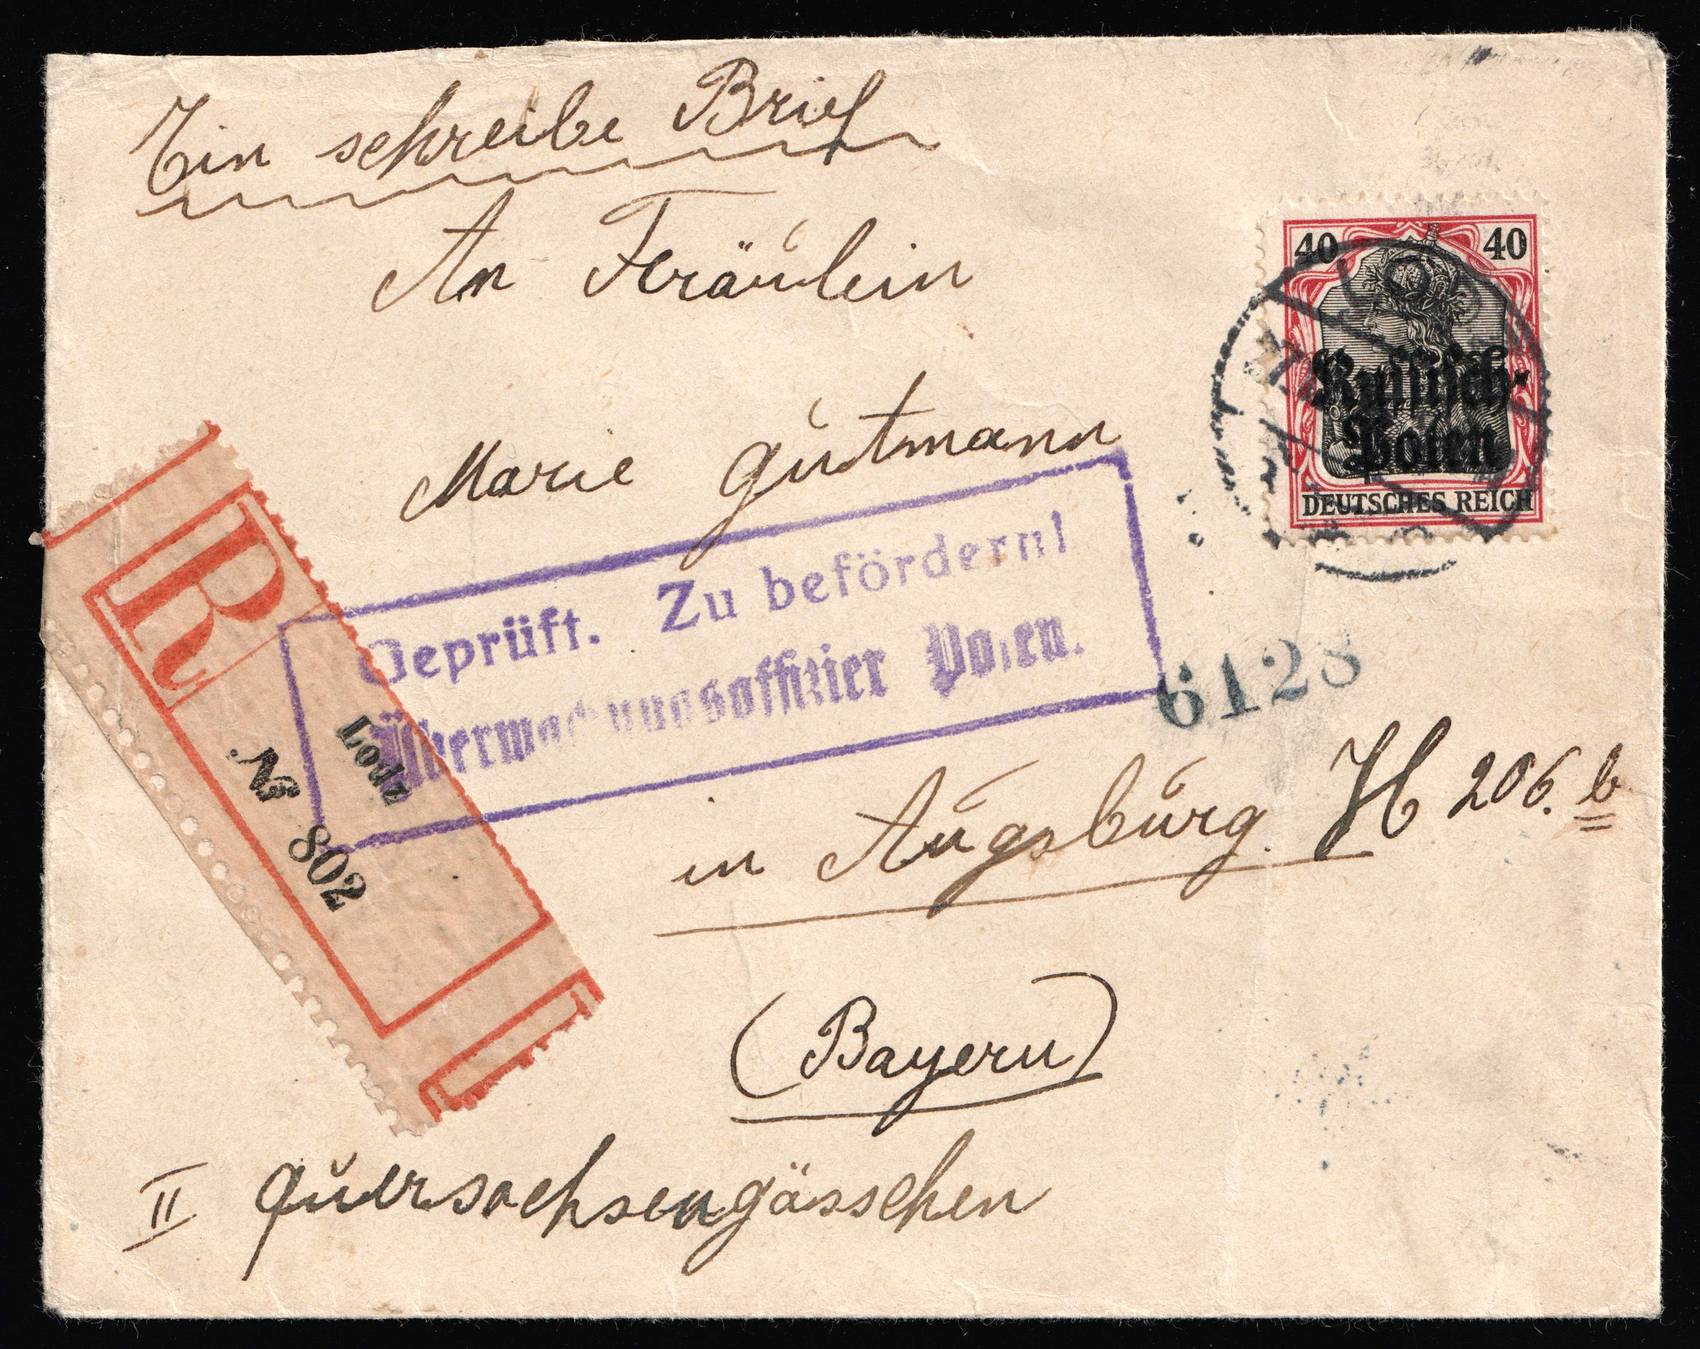 Einschreibe Brief
An Fräulein
40 40
Russisch-
Polen
DEUTSCHES REICH
Marie Gutmann
Geprüft. Zu befördern!
Überwachungsoffizier Posen.
6128
R
Lodz
№ 802
in Augsburg. H 206. b
(Bayern)
II Quersachsengässchen